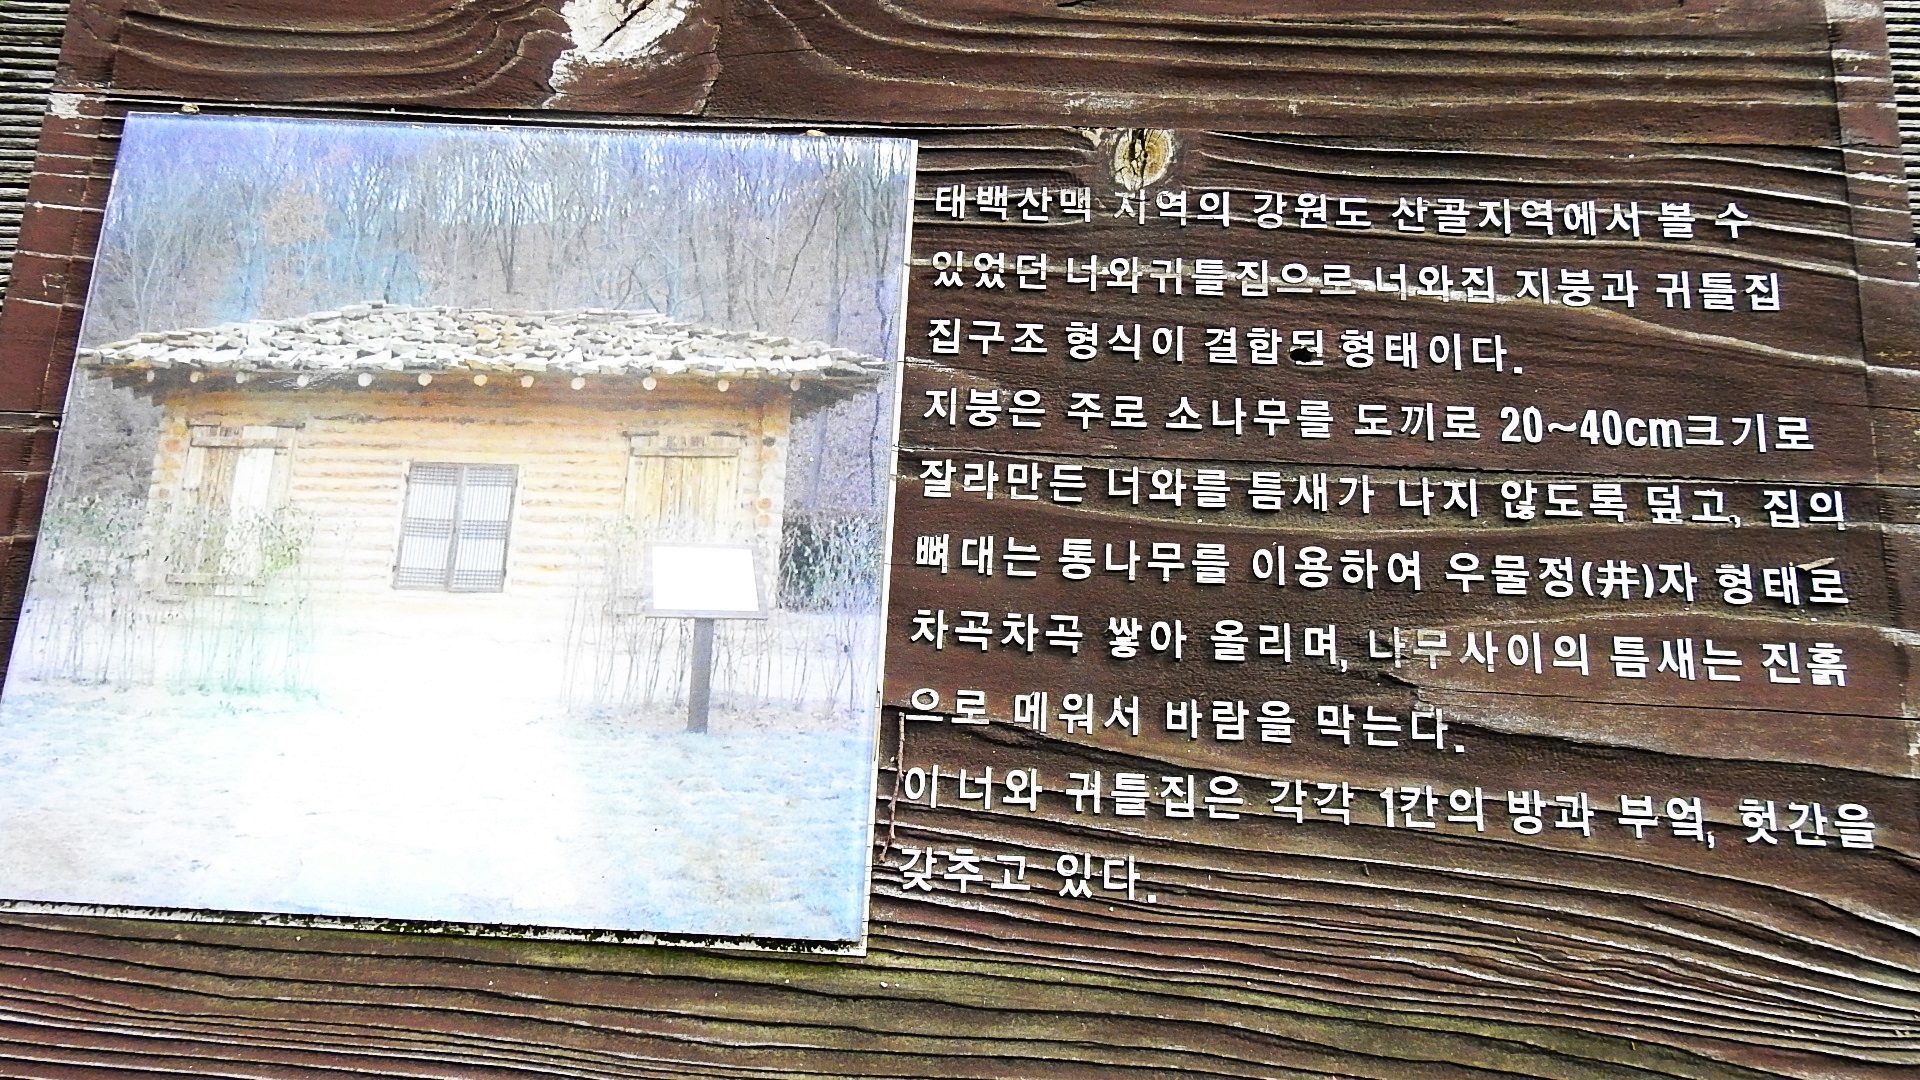 태백산맥 지역의 강원도 산골지역에서 볼 수
있었던 너와귀틀집으로 너와집 지붕과 귀틀집
집구조 형식이 결합된 형태이다.
지붕은 주로 소나무를 도끼로 20~40cm크기로
잘라만든 너와를 틈새가 나지 않도록 덮고, 집의
뼈대는 통나무를 이용하여 우물정(井)자 형태로
차곡차곡 쌓아 올리며, 나무사이의 틈새는 진흙
으로 메워서 바람을 막는다.
이 너와 귀틀집은 각각 1칸의 방과 부엌, 헛간을
갖추고 있다.